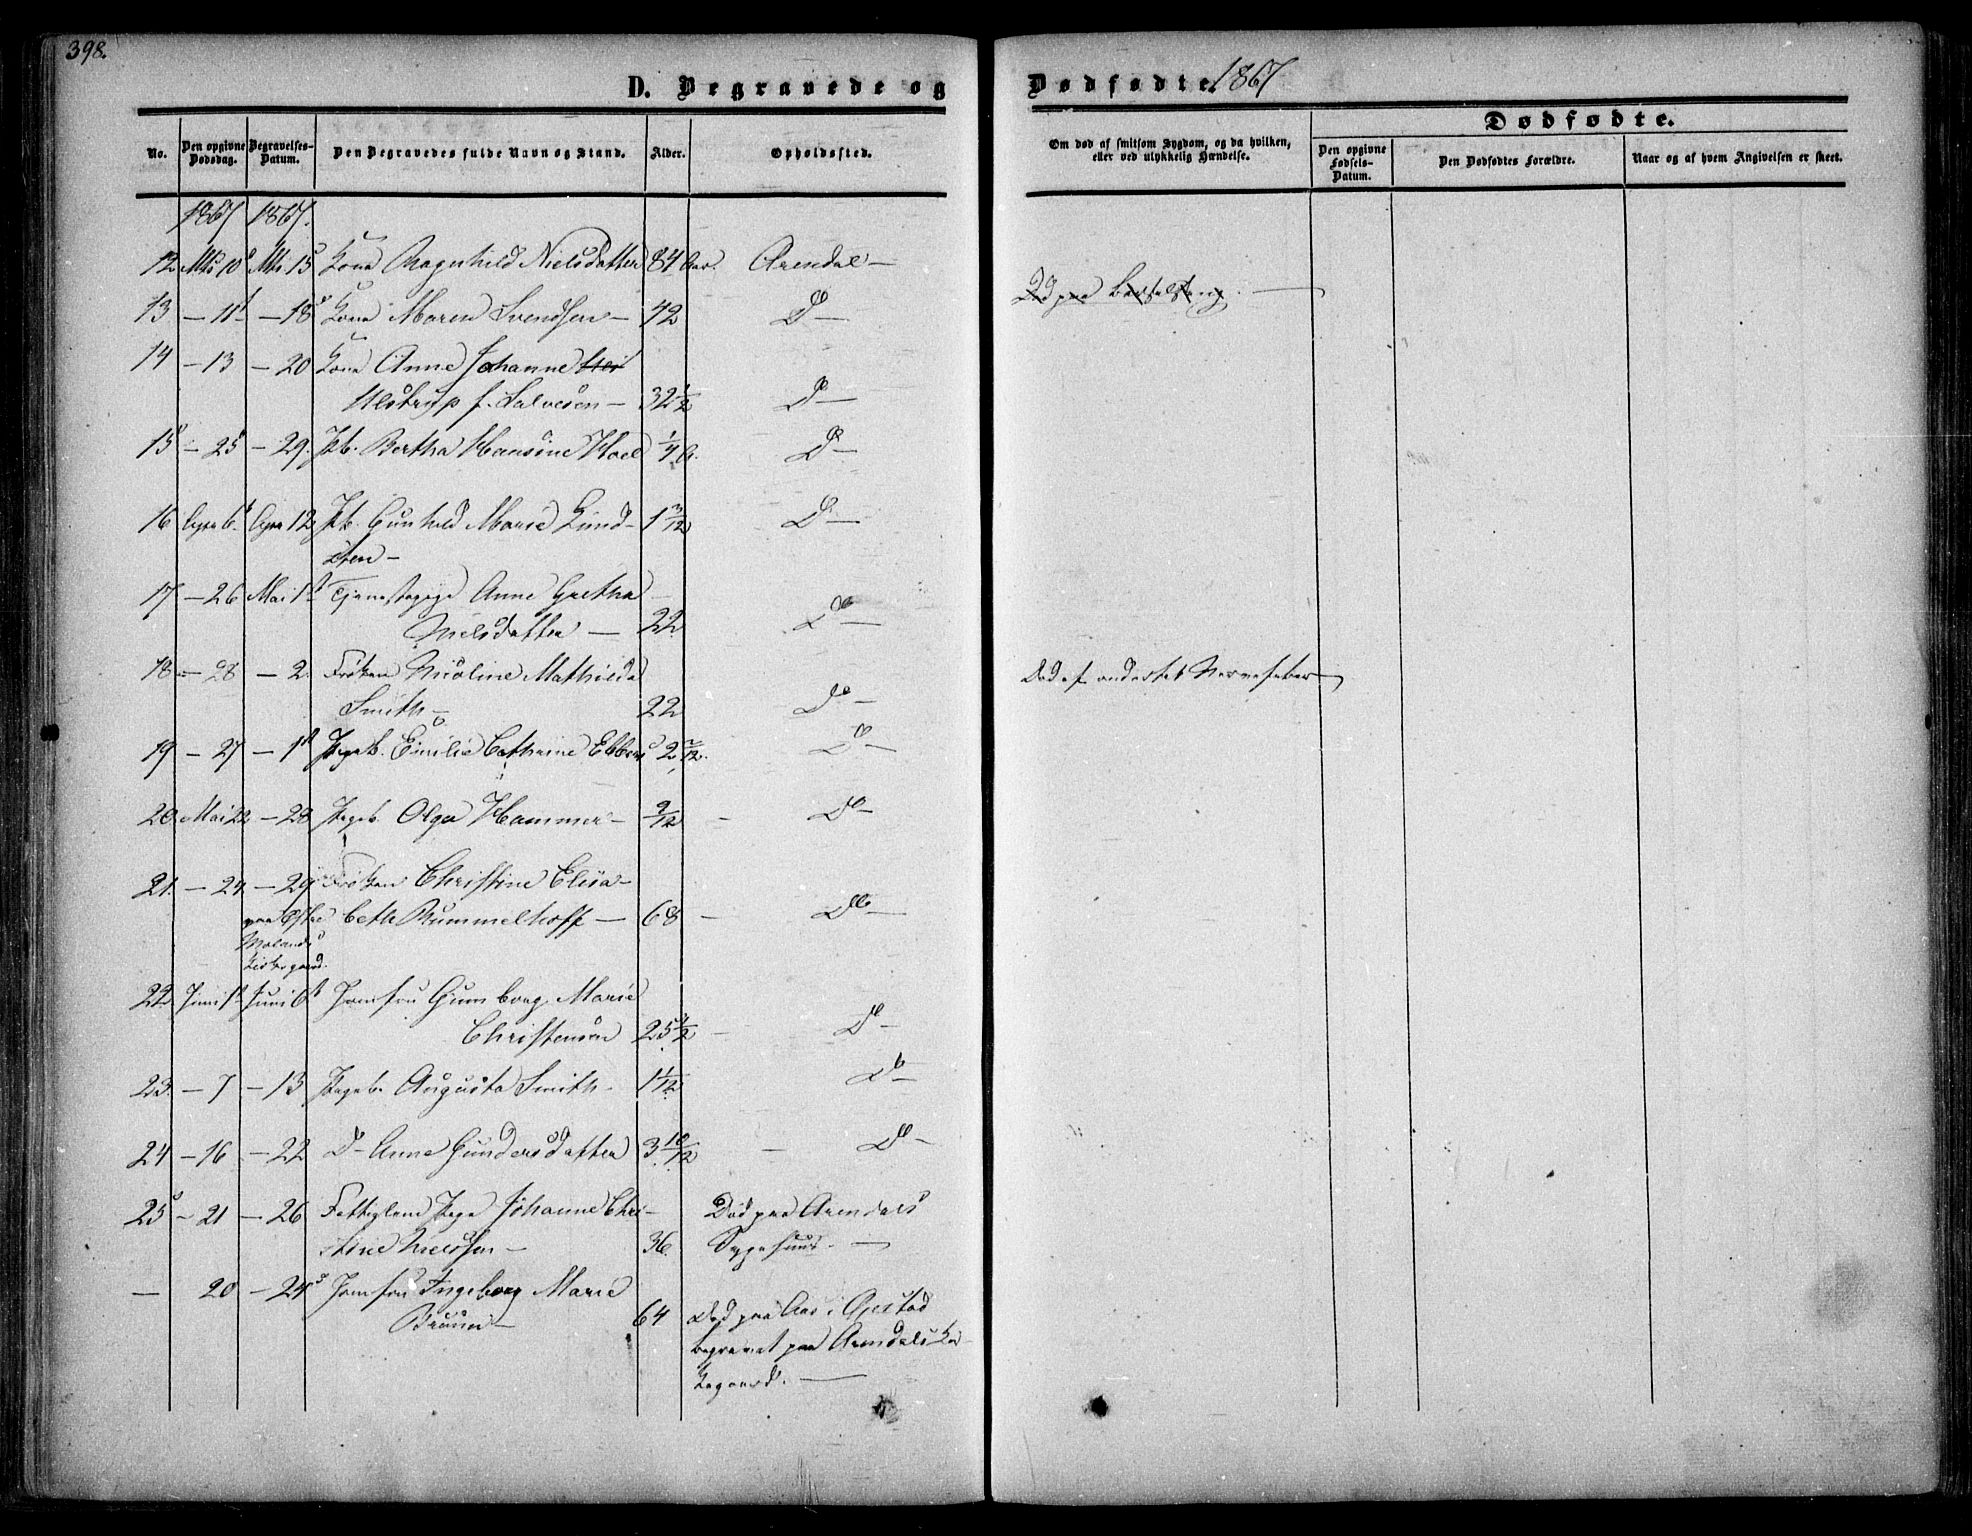 398.
D. Begravede og
Dødfødte 1867
No.
Den opgivne Dødsdag.
Begravelses-Datum.
Den Begravedes fulde Navn og Stand.
Alder.
Opholdssted.
Om død af smitsom Sygdom, og da hvilken, eller ved ulykkelig Hændelse.
Dødfødte.
Den opgivne Fødsels-Datum.
Den Dødfødtes Forældre.
Naar og af hvem Angivelsen er skeet.
1867 1867.
12 Mts 10 Mts 15 Kone Ragnhild Nielsdatter 84 Aar. Arendal —
13 — 11 — 18 Kone Maren Svendsen — 42 Do —
Død paa Barselseng. —
14 — 13 — 20 Kone Anne Johanne
Ulstrup f. Salvesen — 32 1/2 Do —
15 — 25 — 29. Pb. Bertha Hansine Hoel 1/4 A. Do —
16 Apr 6 Apr 12 Pb. Gunhild Marie Lund-
sten — 1 3/12 Do —
17 — 26 Mai 1st Tjenestepige Anne Grethe
Nielsdatter — 22 Do —
18 — 28 — 2. Frøken Nicoline Mathilde
Smith — 22 Do —
Død af ondartet Nervefeber —
19 — 27 — 1st Pigeb. Emilie Cathrine Ebbens 2 2/12. Do —
20. Mai 22 — 28 Pigeb. Olga Hammer — 9/12 — Do —
21. — 24 — 29 Frøken Christine Elisa-
paa Østre beth Rummelhoff — 68 — Do —
Molands
Kirkegaard.
22. Juni 1st Juni 6t Jomfru Gunborg Marie
Christensen 25 1/2 — Do —
23. — 7 — 13 Pigeb. Augusta Smith — 1 1/12 Do —
24 — 16 — 22 Do Anne Gundersdatter 3 10/12 — Do —
25 — 21 — 26 Fattiglem Pige Johanne Chri- Død paa Arendals
stine Nielsen — 36. Sygehuus. —
— 20 — 24 Jomfru Ingeborg Marie
Bruun — 64 Død paa Aas i Gjerstad
begravet paa Arendals Kir-
kegaard. —